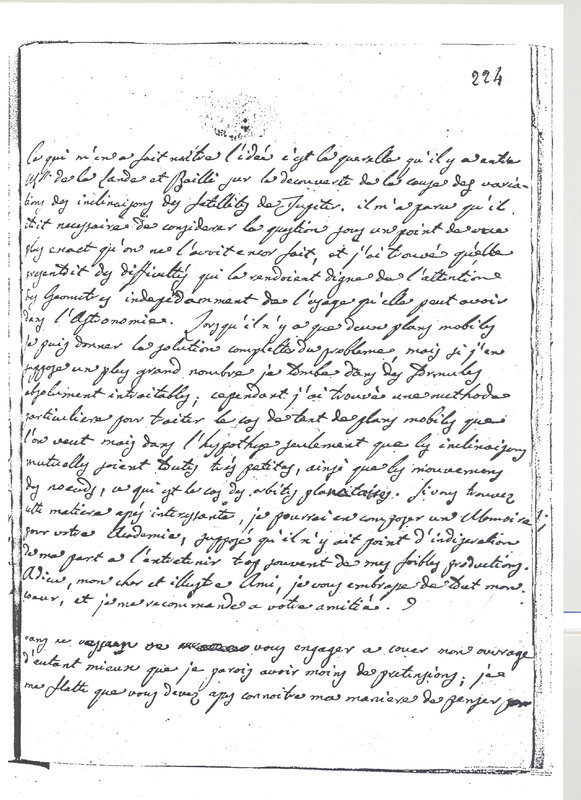 224
Ce qui m'en a fait naitre l'idée c'est la querelle qu'il y a entre
Mrs de la Lande et Bailli sur la decouverte de la cause des varia-
tions des inclinaisons des satellites de Jupiter. il m'a paru qu'il
étoit necessaire de considerer la question sous un point de vue
plus exact qu'on ne l'avoit encor fait, et j'ai trouvé qu'elle
presentoit des difficultés qui la rendoient digne de l'attention
des Geometres indepédamment de l'usage qu'elle peut avoir
dans l'Astronomie. Lorsqu'il n'y a que deux plans mobiles
je puis donner la solution complette du probleme mais si j'en
suppose un plus grand nombre je tombe dans des formules
absolument intraitables; cependant j'ai trouvé une methode
particuliere pour traiter le cas de tant de plans mobiles que
l'on veut mais dans l'hypothese seulement que les inclinaisons
mutuelles soient toutes très petites, ainsi que les mouvemens
des noeuds, ce qui est le cas des orbites planetaires. Si vous trouvez
cette matiere assés interessante, je pourrai en composer un Memoire
pour votre Academie, supposé qu'il n'y ait point d'indiscretion
de ma part a l'entretenir trop souvent de mes foibles productions.
Adieu, mon cher et illustre Ami, je vous embrasse de tout mon
coeur, et je me recommande a votre amitié.
dans ce vous engager a couer mon ouvrage
d'autant mieux que je parois avoir moins de pretensions; je
me flatte que vous devez assés connoitre ma maniere de penser